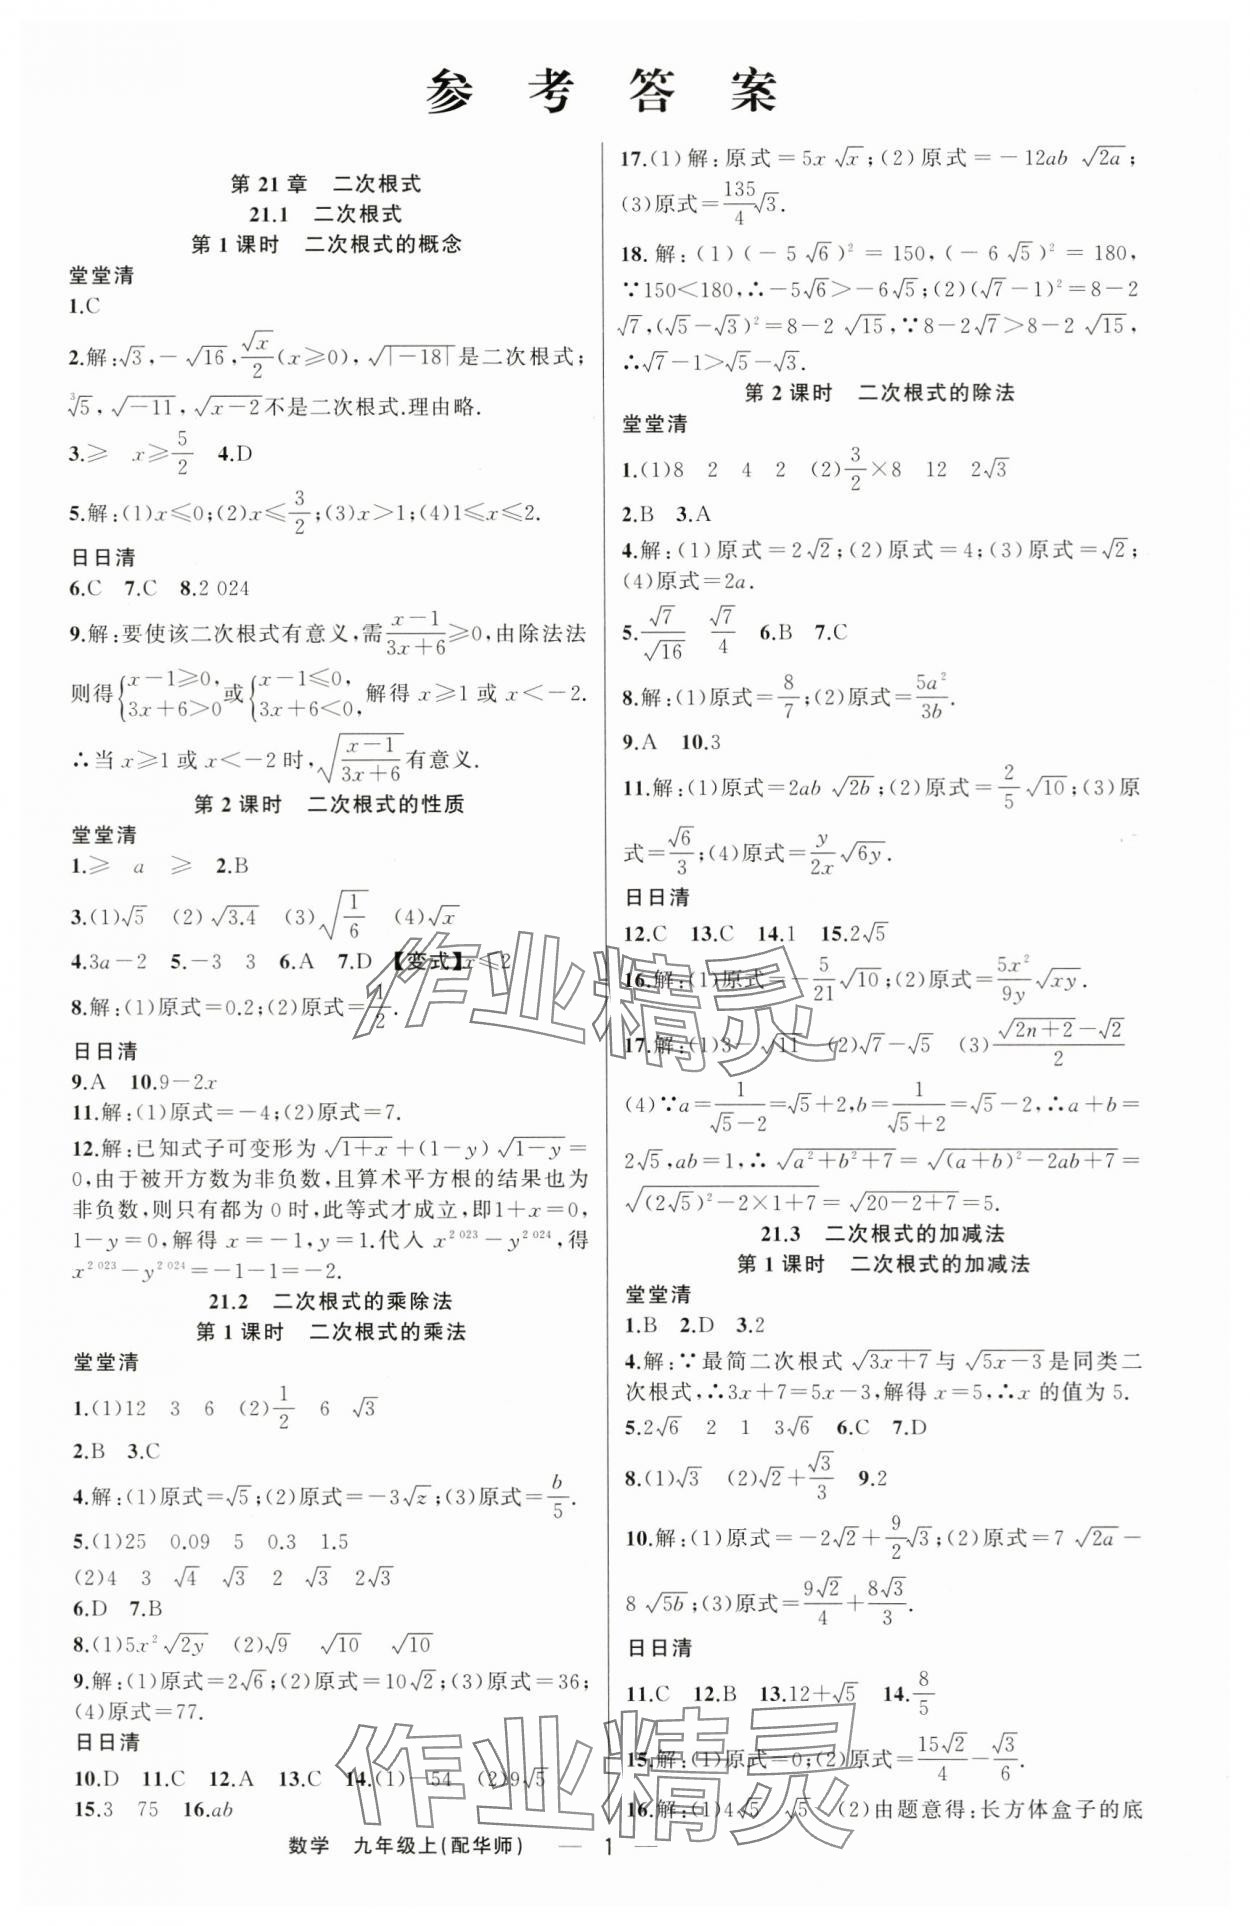 参 考 答 案
第 21 章　二次根式
21.1　二次根式
第 1 课时　二次根式的概念
堂堂清
1.C
2.解:√3,-√16,√x/2(x≥0),√|-18|是二次根式;
³√5,√-11,√x-2不是二次根式.理由略.
3.≥　x≥5/2　4.D
5.解:(1)x≤0;(2)x≤3/2;(3)x>1;(4)1≤x≤2.
日日清
6.C　7.C　8.2 024
9.解:要使该二次根式有意义,需(x-1)/(3x+6)≥0,由除法法
则得{x-1≥0, 3x+6>0或{x-1≤0, 3x+6<0,解得 x≥1 或 x<-2.
∴当 x≥1 或 x<-2 时,√((x-1)/(3x+6))有意义.
第 2 课时　二次根式的性质
堂堂清
1.≥　a　≥　2.B
3.(1)√5　(2)√3.4　(3)√(1/6)　(4)√x
4.3a-2　5.-3　3　6.A　7.D　【变式】x≤2
8.解:(1)原式=0.2;(2)原式=1/2.
日日清
9.A　10.9-2x
11.解:(1)原式=-4;(2)原式=7.
12.解:已知式子可变形为√(1+x)+(1-y)√(1-y)=
0,由于被开方数为非负数,且算术平方根的结果也为
非负数,则只有都为 0 时,此等式才成立,即1+x=0,
1-y=0,解得 x=-1,y=1.代入 x²⁰²³-y²⁰²⁴,得
x²⁰²³-y²⁰²⁴=-1-1=-2.
21.2　二次根式的乘除法
第 1 课时　二次根式的乘法
堂堂清
1.(1)12　3　6　(2)1/2　6　√3
2.B　3.C
4.解:(1)原式=√5;(2)原式=-3√z;(3)原式=b/5.
5.(1)25　0.09　5　0.3　1.5
(2)4　3　√4　√3　2　√3　2√3
6.D　7.B
8.(1)5x²√2y　(2)√9　√10　√10
9.解:(1)原式=2√6;(2)原式=10√2;(3)原式=36;
(4)原式=77.
日日清
10.D　11.C　12.A　13.C　14.(1)-54　(2)9√5
15.3　75　16.ab
17.(1)解:原式=5x√x;(2)原式=-12ab√2a;
(3)原式=135/4√3.
18.解:(1)(-5√6)²=150,(-6√5)²=180,
∵150<180,∴-5√6>-6√5;(2)(√7-1)²=8-2
√7,(√5-√3)²=8-2√15,∵8-2√7>8-2√15,
∴√7-1>√5-√3.
第 2 课时　二次根式的除法
堂堂清
1.(1)8　2　4　2　(2)3/2×8　12　2√3
2.B　3.A
4.解:(1)原式=2√2;(2)原式=4;(3)原式=√2;
(4)原式=2a.
5.√7/√16　√7/4　6.B　7.C
8.解:(1)原式=8/7;(2)原式=5a²/3b.
9.A　10.3
11.解:(1)原式=2ab√2b;(2)原式=2/5√10;(3)原
式=√6/3;(4)原式=y/2x√6y.
日日清
12.C　13.C　14.1　15.2√5
16.解:(1)原式=-5/21√10;(2)原式=5x²/9y√xy.
17.解:(1)3-√11　(2)√7-√5　(3)(√(2n+2)-√2)/2
(4)∵a=1/(√5-2)=√5+2,b=1/(√5+2)=√5-2,∴a+b=
2√5,ab=1,∴√(a²+b²+7)=√((a+b)²-2ab+7)=
√((2√5)²-2×1+7)=√(20-2+7)=5.
21.3　二次根式的加减法
第 1 课时　二次根式的加减法
堂堂清
1.B　2.D　3.2
4.解:∵最简二次根式√(3x+7)与√(5x-3)是同类二
次根式,∴3x+7=5x-3,解得 x=5,∴x 的值为 5.
5.2√6　2　1　3√6　6.C　7.D
8.(1)√3　(2)√2+√3/3　9.2
10.解:(1)原式=-2√2+9/2√3;(2)原式=7√2a-
8√5b;(3)原式=9√2/4+8√3/3.
日日清
11.C　12.B　13.12+√5　14.8/5
15.解:(1)原式=0;(2)原式=15√2/4-√3/6.
16.解:(1)4√5　√5　(2)由题意得:长方体盒子的底
数学　九年级上(配华师)　— 1 —
作业精灵
作业精灵